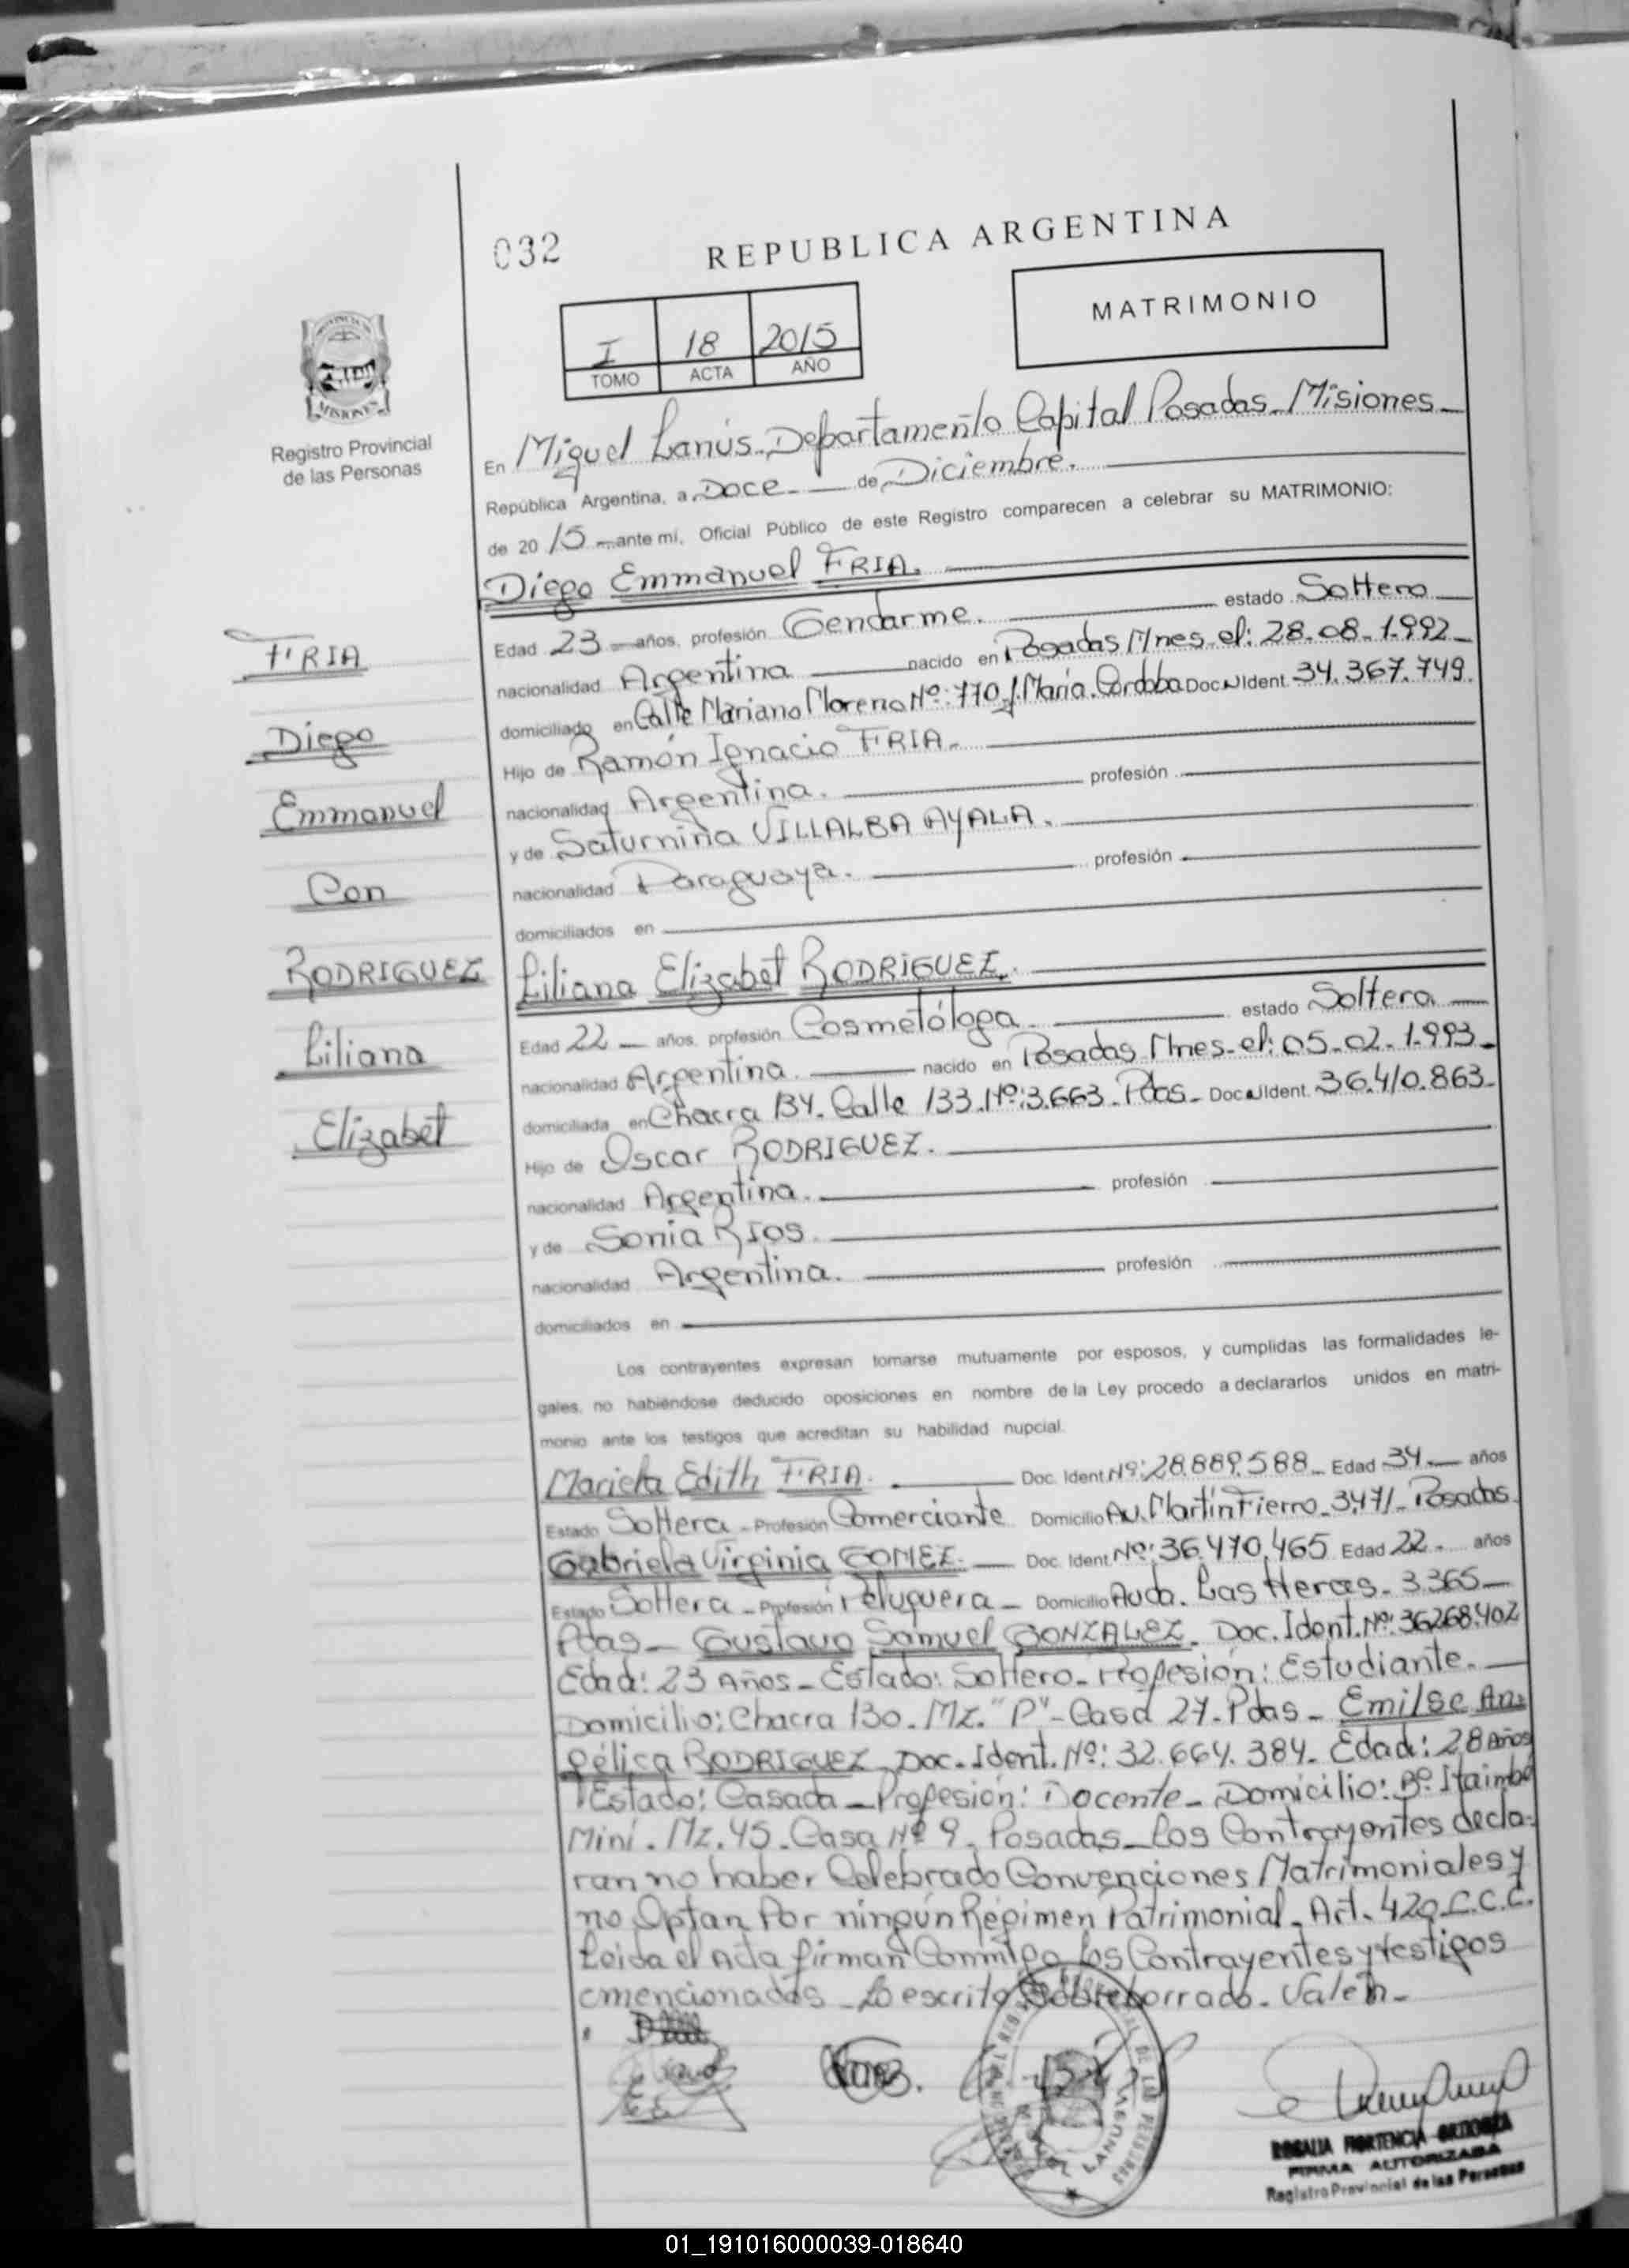 032
REPUBLICA ARGENTINA
I 18 2015
TOMO ACTA AÑO
MATRIMONIO
PROVINCIA DE
MISIONES
Registro Provincial
de las Personas
En Miguel Lanús. Departamento Capital Posadas_Misiones_
República Argentina, a Doce_ de Diciembre.
de 2015 ante mí, Oficial Público de este Registro comparecen a celebrar su MATRIMONIO:
Diego Emmanuel FRIA.
Edad 23 años, profesión Gendarme. estado Soltero
nacionalidad Argentina nacido en Posadas Mnes. el: 28.08.1.992_
domiciliado en Calle Mariano Moreno Nº: 770 J. María. Cordoba Doc. Ident. 34.367.749.
Hijo de Ramón Ignacio FRIA.
nacionalidad Argentina. profesión
y de Saturnina VILLALBA AYALA.
nacionalidad Paraguaya. profesión
domiciliados en
Liliana Elizabet RODRIGUEZ.
Edad 22 años, profesión Cosmetóloga estado Soltera
nacionalidad Argentina. nacido en Posadas Mnes. el: 05.02.1.993_
domiciliada en Chacra 134. Calle 133. Nº: 3.663. Pdas_ Doc. Ident. 36.410.863_
Hijo de Oscar RODRIGUEZ.
nacionalidad Argentina. profesión
y de Sonia RIOS.
nacionalidad Argentina. profesión
domiciliados en
FRIA
Diego
Emmanuel
Con
RODRIGUEZ
Liliana
Elizabet
Los contrayentes expresan tomarse mutuamente por esposos, y cumplidas las formalidades le-
gales, no habiéndose deducido oposiciones en nombre de la Ley procedo a declararlos unidos en matri-
monio ante los testigos que acreditan su habilidad nupcial.
Mariela Edith FRIA. Doc. Ident. Nº: 28.889.588_ Edad 34 años
Estado Soltera_ Profesión Comerciante Domicilio Av. Martín Fierro_3471_ Posadas.
Gabriela Virginia GOMEZ. Doc. Ident. Nº: 36.470.465 Edad 22 años
Estado Soltera_ Profesión Peluquera_ Domicilio Avda. Las Heras_ 3.365_
Pdas_ Gustavo Samuel GONZALEZ. Doc. Ident. Nº: 36268.402
Edad: 23 Años_ Estado: Soltero_ Profesión: Estudiante.
Domicilio: Chacra 130. Mz. "P"_ Casa 27. Pdas_ Emilse An=
gélica RODRIGUEZ_ Doc. Ident. Nº: 32.664.384_ Edad: 28 Años
Estado: Casada_ Profesión: Docente_ Domicilio: Bº. Itaimbé
Miní. Mz. 45_ Casa Nº 9. Posadas_ Los Contrayentes decla-
ran no haber Celebrado Convenciones Matrimoniales y
no Optan Por ningún Régimen Patrimonial_ Art. 420 C.C.C.
Leida el Acta firman Conmigo los Contrayentes y testigos
emencionados_ Lo escrito Sobreborrado. Valen_
LANUS
DE LAS PERSONAS
ROSALIA HORTENCIA
FIRMA AUTORIZADA
Registro Provincial de las Personas
01_191016000039-018640